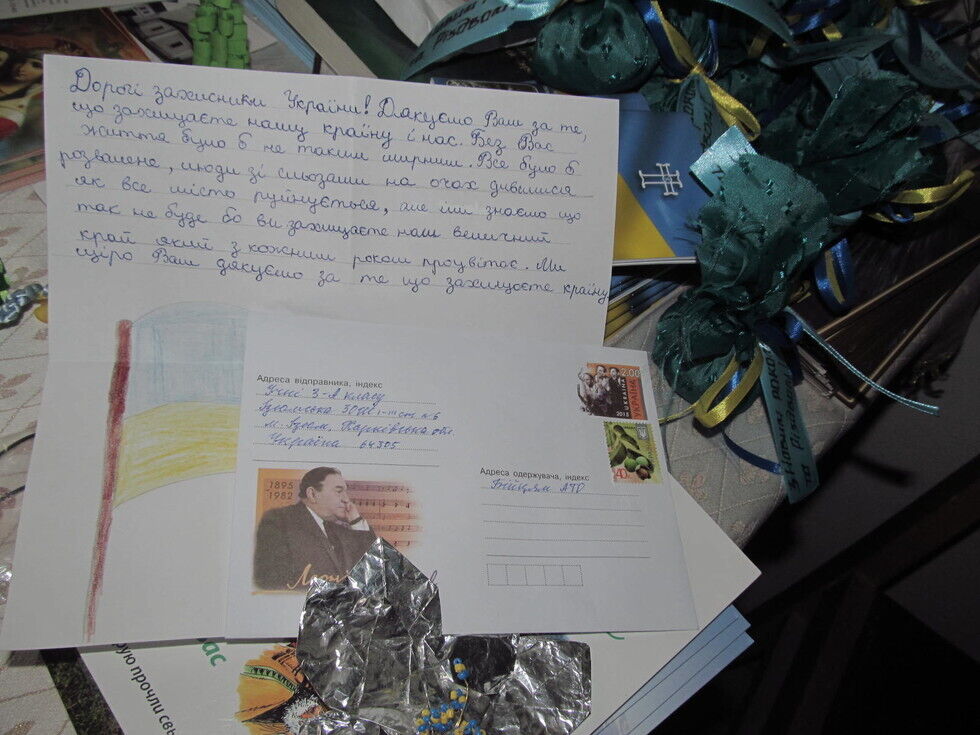 Дорогі захисники України! Дякуємо Вам за те,
що захищаєте нашу країну і нас. Без Вас
життя було б не таким мирним. Все було б
розвалене, люди зі сльозами на очах дивилися
як все місто руйнується, але ми знаємо що
так не буде бо ви захищаєте наш величний
край який з кожним роком процвітає. Ми
щіро Вам дякуємо за те що захищаєте країну
Адреса відправника, індекс
Учні 3-А класу
Ізюмська ЗОШ І-ІІІ ст. №6
м. Ізюм. Харківська обл.
Україна 64305
2.00
2015
УКРАЇНА
UKRAINE
40
1895
1982
Адреса одержувача, індекс
Бійцям АТО